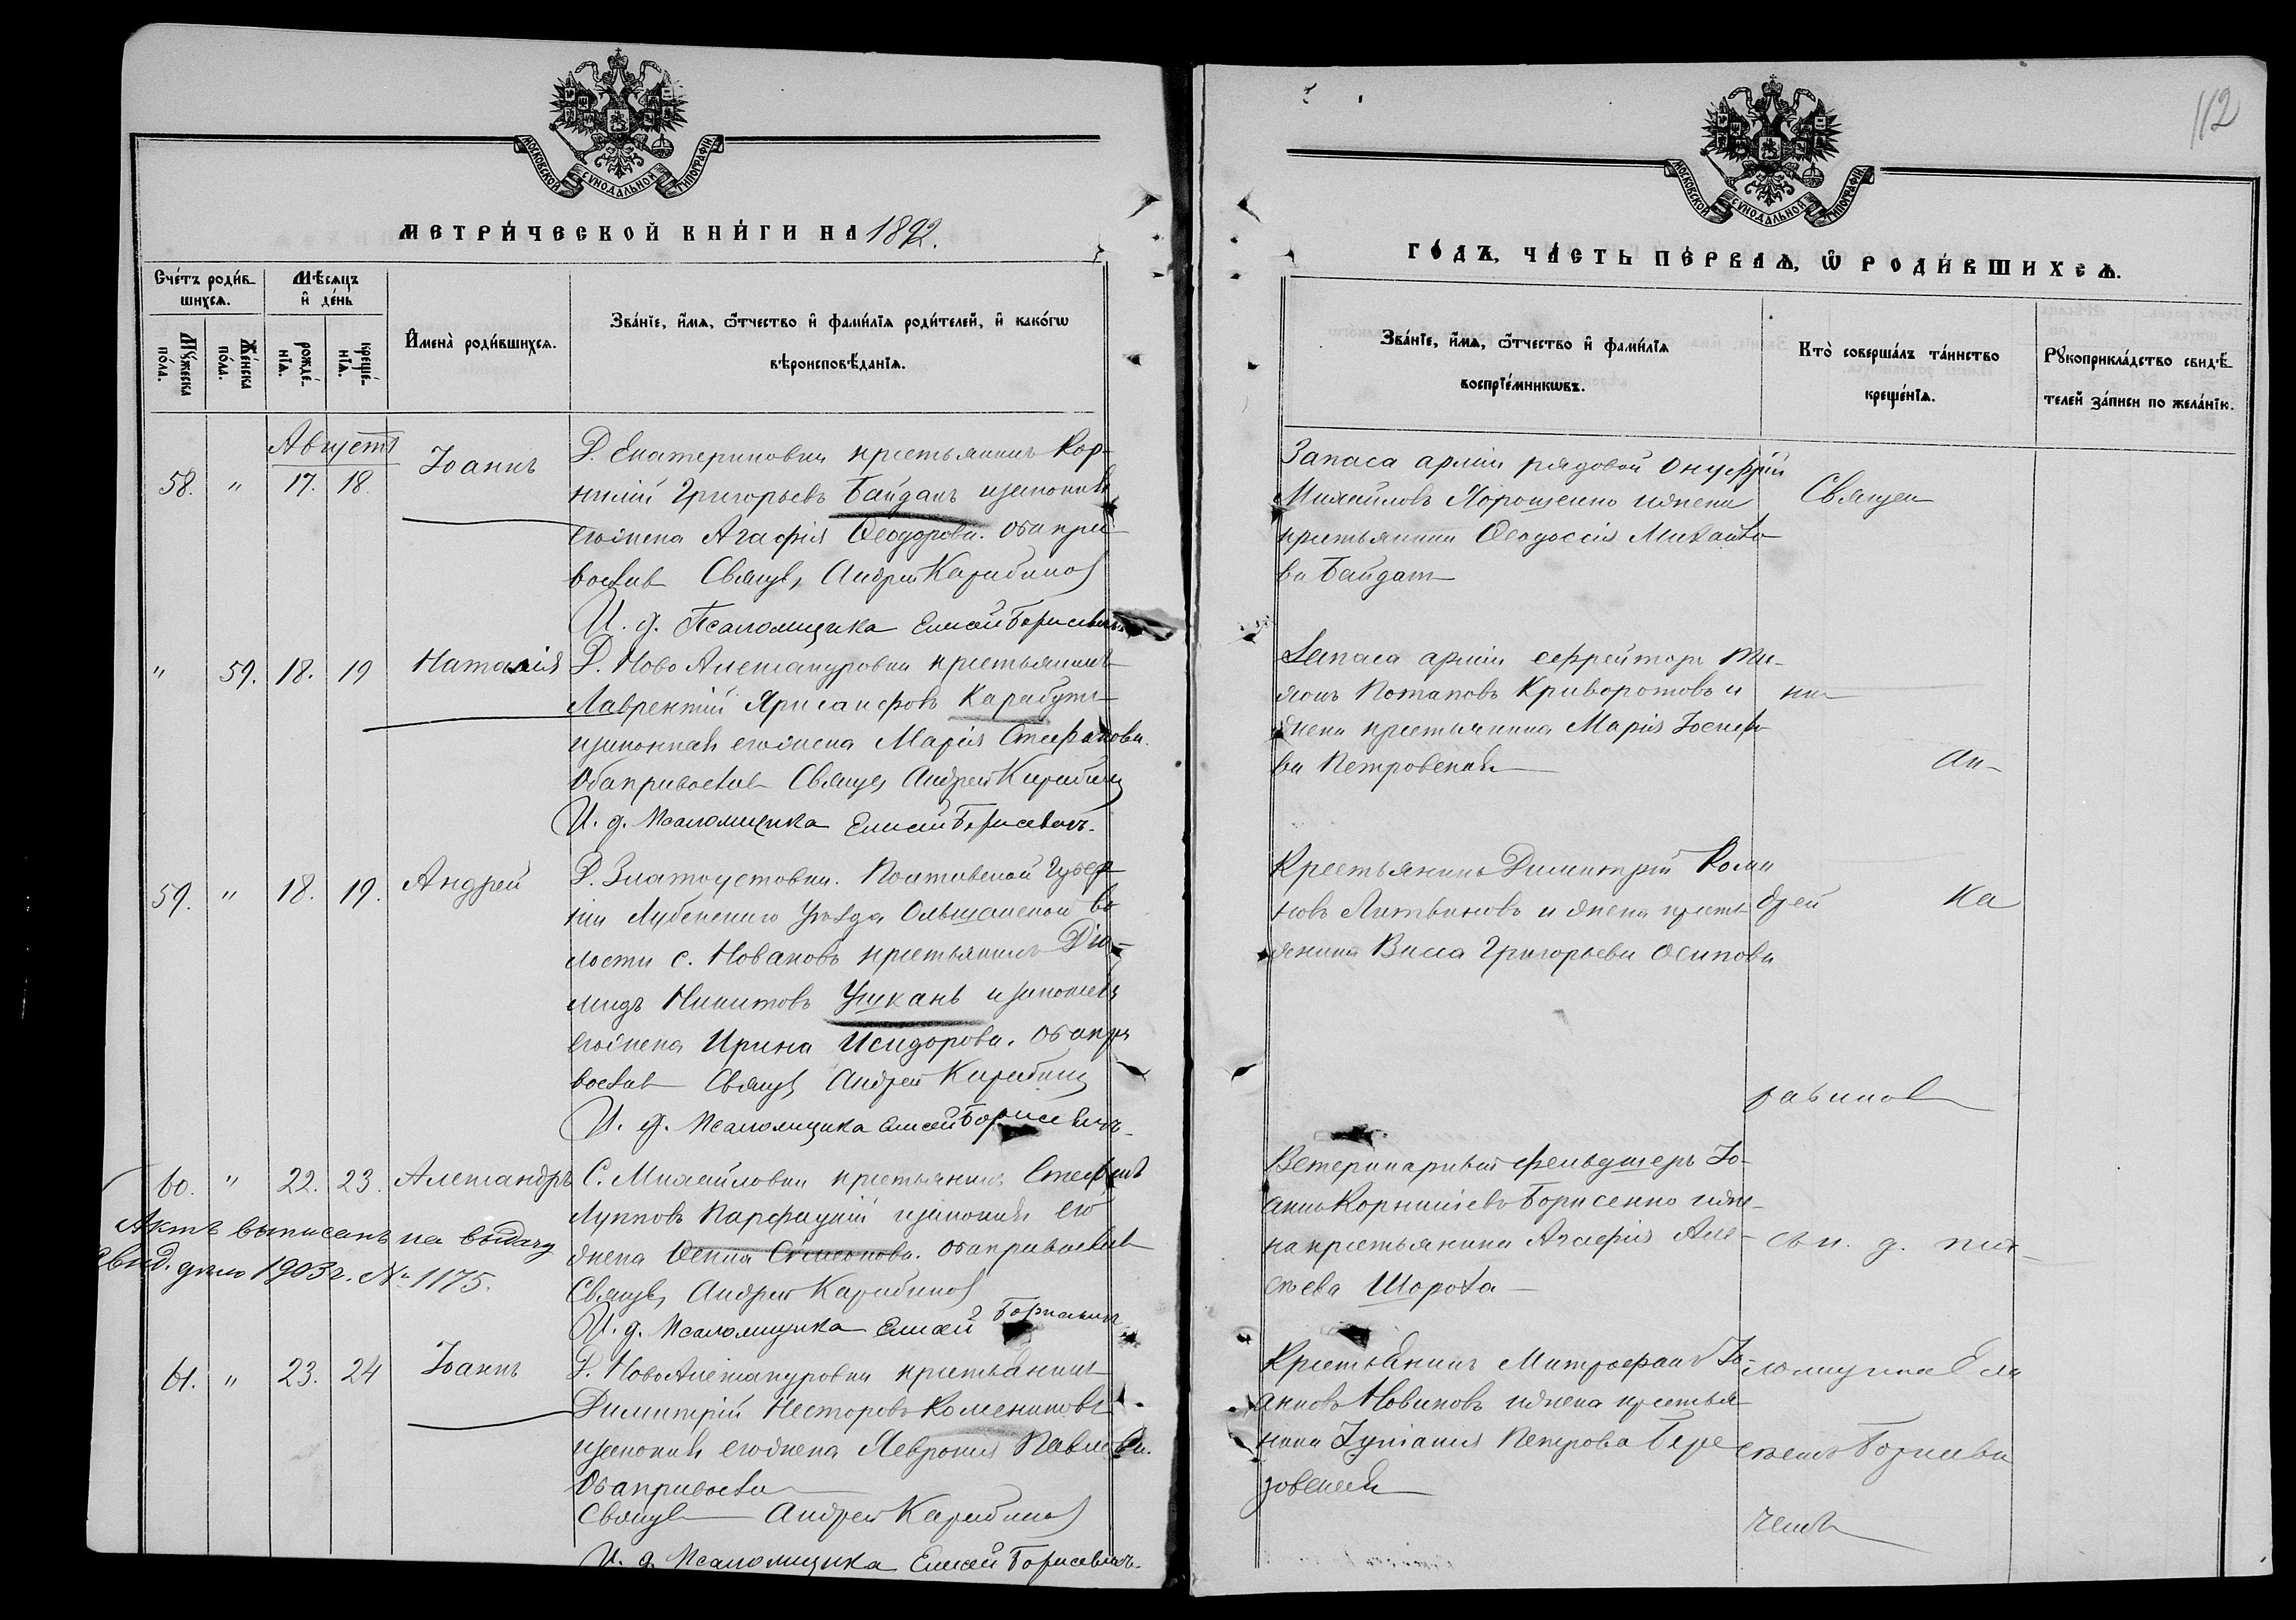 МОСКОВСКОЙ СѴНОДАЛЬНОЙ ТИПОГРАФІИ
МЕТРИ́ЧЕСКОЙ КНИ́ГИ НА 1892.
Сче́тъ роди́вшихсѧ.
Мѣ́сѧцъ и҆ де́нь
Мꙋ́жеска по́ла.
Же́нска по́ла.
рожде́нїѧ.
креще́нїѧ.
И҆мена̀ роди́вшихсѧ.
Зва́нїе, и҆́мѧ, ѻ҆́тчество и҆ фами́лїѧ роди́телей, и҆ како́гѡ
вѣроисповѣ́данїѧ.
Августъ
58. " 17. 18. Іоаннъ
Д. Екатериновки крестьянинъ Кор-
нилій Григорьевъ Байдакъ и законная
его жена Агафія Ѳеодорова. Оба пра-
восλав Священ, Андрей Карабинов
И. д. Псаломщика Елисей Борисевичъ.
" 59. 18. 19 Наталія
Д. Ново Александровки крестьянинъ
Лаврентій Карабутъ
и законная его жена Марія Стефанова.
Оба православ Священ, Андрей Карабинов
И. д. Псаломщика Елисей Борисевичъ.
59. " 18. 19. Андрей
Д. Златоустовки. Полтавской Губер-
ніи Лубенскаго Уѣзда Ольшанской во
лости с. крестьянинъ Діо-
мидъ Никитовъ Ушканъ и законная
его жена Ирина Исидорова. Оба пра
вослав Священ, Андрей Карабинов
И. д. Псаломщика Елисей Борисевичъ.
60. " 22. 23. Александръ
С. Михайловки крестьянинъ Стефанъ
Лупповъ и законная его
жена Семенова. Оба православ
Священ, Андрей Карабинов
И. д. Псаломщика Елисей Борисевичъ
Актъ выписанъ на выдачу
свид. дѣло 1903 г. № 1175.
61. " 23. 24 Іоаннъ
Д. Ново Александровки крестьянинъ
Димитрій Несторовъ
и законная его жена Февронія Павлова.
Оба православ
Священ Андрей Карабинов
И. д. Псаломщика Елисей Борисевичъ.
112
МОСКОВСКОЙ СѴНОДАЛЬНОЙ ТИПОГРАФІИ
ГО́ДЪ, ЧА́СТЬ ПЕ́РВАѦ, Ѽ РОДИ́ВШИХСѦ.
Зва́нїе, и҆́мѧ, ѻ҆́тчество и҆ фами́лїѧ
воспрїе́мникѡвъ.
Кто̀ соверша́лъ та́инство
креще́нїѧ.
Рꙋкоприкла́дство свидѣ́
телей за́писи по жела́нїю.
Запаса арміи рядовой Онуфрій
Михайловъ Ярошенко и жена
крестьянина Ѳеодосія Михайло
ва Байдак
Священ
Запаса арміи ефрейторъ
Потаповъ Криворотовъ и
жена крестьянина Марія Іосифо
ва Петровская
ни
Ан-
Крестьянинъ Димитрій Рома
новъ Литвиновъ и жена кресть
янина Васса Григорьева Осипова
дрей Ка
рабинов
Ветеринарный фельдшеръ Іо-
аннъ Корниліевъ Борисенко и же-
на крестьянина Агафія Але-
ксѣева Шороха
съ и. д. пса-
Крестьянинъ Митрофанъ Іо-
анновъ Новиковъ и жена крестья
нина Іуліанія Петрова Бере
зовская
ломщика Ели
сеемъ Борисеви
чемъ